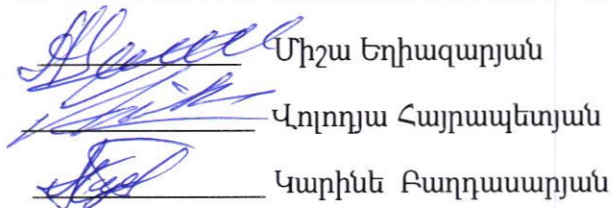 Միշա Եղիազարյան
Վոլոդյա Հայրապետյան
Կարինե Բաղդասարյան